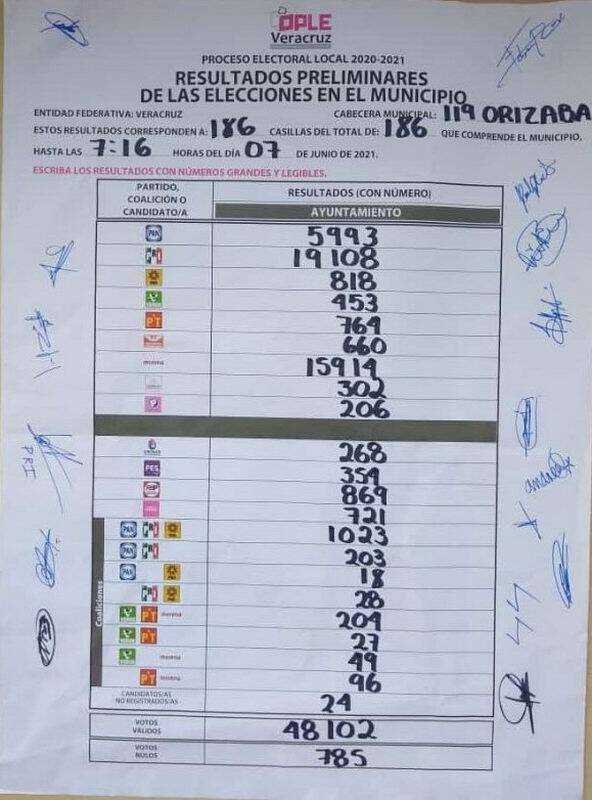 OPLE
Veracruz
PROCESO ELECTORAL LOCAL 2020-2021
RESULTADOS PRELIMINARES
DE LAS ELECCIONES EN EL MUNICIPIO
ENTIDAD FEDERATIVA: VERACRUZ CABECERA MUNICIPAL: 119 ORIZABA
ESTOS RESULTADOS CORRESPONDEN A: 186 CASILLAS DEL TOTAL DE: 186 QUE COMPRENDE EL MUNICIPIO,
HASTA LAS 7:16 HORAS DEL DÍA 07 DE JUNIO DE 2021.
ESCRIBA LOS RESULTADOS CON NÚMEROS GRANDES Y LEGIBLES.
PARTIDO, COALICIÓN O CANDIDATO/A RESULTADOS (CON NÚMERO)
AYUNTAMIENTO
PAN 5993
PRI 19108
PRD 818
VERDE 453
PT 764
660
morena 15914
302
206
268
PES 359
869
721
PAN PRI PRD 1023
PAN PRI 203
PAN PRD 18
PRI PRD 28
VERDE PT morena 209
VERDE PT 27
VERDE morena 49
PT morena 96
Coaliciones
CANDIDATOS/AS NO REGISTRADOS/AS 24
VOTOS VÁLIDOS 48102
VOTOS NULOS 785
PRI